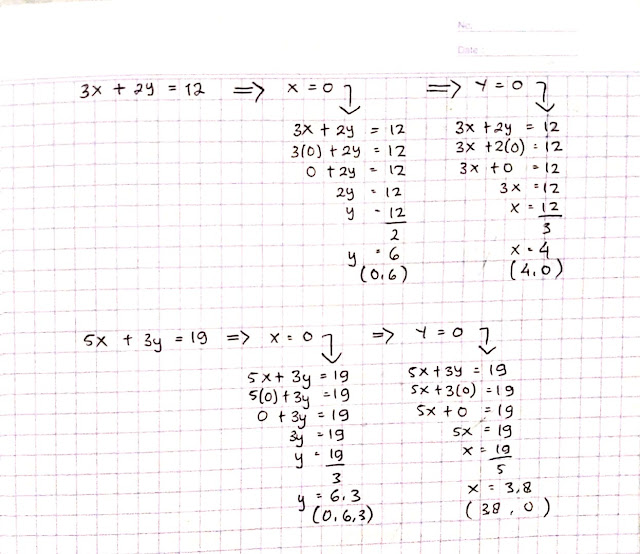 No.
Date
3x + 2y = 12 => x = 0
3x + 2y = 12
3(0) + 2y = 12
0 + 2y = 12
2y = 12
y = 12
2
y = 6
(0,6)
=> Y = 0
3x + 2y = 12
3x + 2(0) = 12
3x + 0 = 12
3x = 12
x = 12
3
x = 4
(4,0)
5x + 3y = 19 => x = 0
5x + 3y = 19
5(0) + 3y = 19
0 + 3y = 19
3y = 19
y = 19
3
y = 6,3
(0,6,3)
=> Y = 0
5x + 3y = 19
5x + 3(0) = 19
5x + 0 = 19
5x = 19
x = 19
5
x = 3,8
(38, 0)